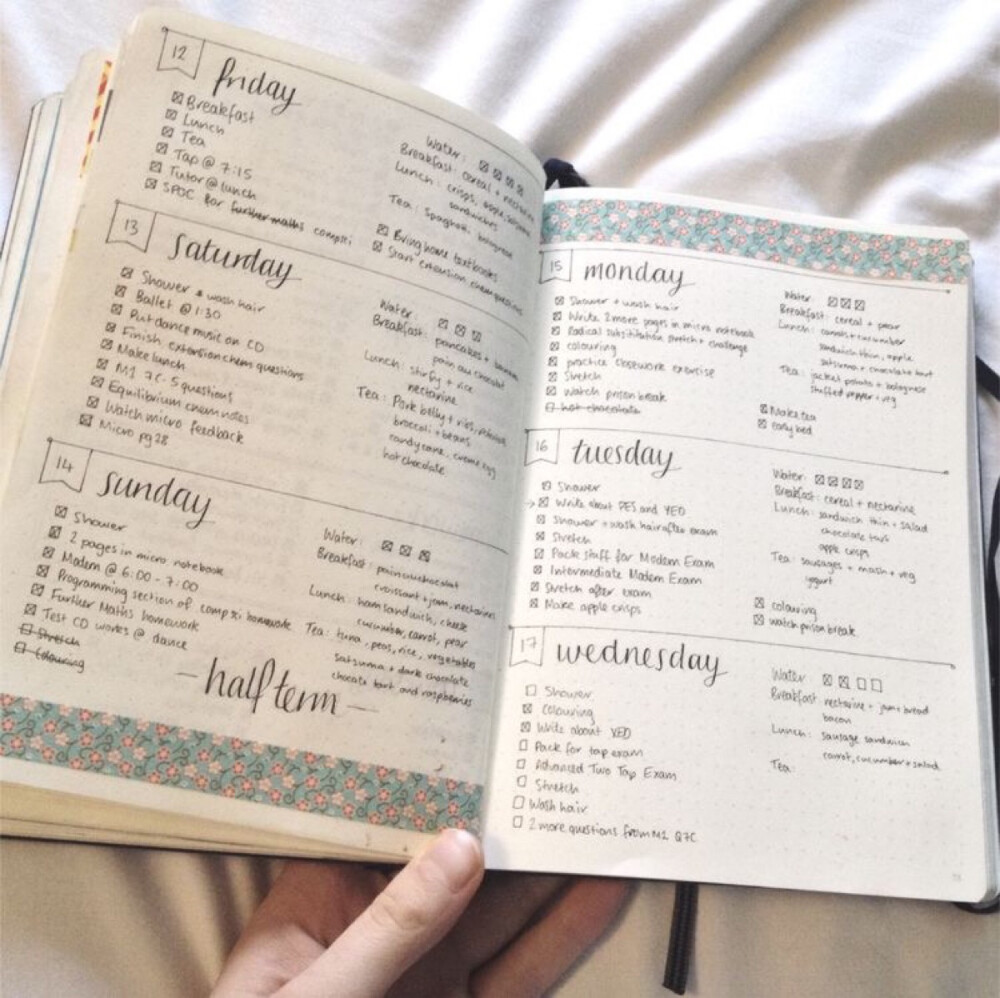 12
friday
Breakfast
Lunch
Tea
Tap @ 7:15
Tutor @ lunch
SPDC for further maths compsci
Water:
Breakfast: cereal + nectarine
Lunch: crisps, apple,
sandwiches
Tea: Spaghetti bolognese
Bring home textbooks
Start extension chem questions
13
saturday
Shower + wash hair
Ballet @ 1:30
Put dance music on CD
Finish extension chem questions
Make lunch
M1 7C-5 questions
Equilibrium chem notes
Watch micro feedback
Micro pg 28
Water:
Breakfast: pancakes + banana
pain au chocolat
Lunch: stirfry + rice
nectarine
Tea: Pork belly + ribs, potatoes
broccoli + beans
candy cane, creme egg
hot chocolate
14
sunday
Shower
2 pages in micro notebook
Modern @ 6:00 - 7:00
Programming section of compsci homework
Further Maths homework
Test CD works @ dance
Stretch
Colouring
Water:
Breakfast: pain au chocolat
croissant + jam, nectarines
Lunch: ham sandwich, cheese
cucumber, carrot, pear
Tea: tuna, peas, rice, vegetables
satsuma + dark chocolate
chocolate tart and raspberries
- half term -
15
monday
Shower + wash hair
Write 2 more pages in micro notebook
Radical substitution stretch + challenge
colouring
practice closework exercise
Stretch
Watch prison break
hot chocolate
Water:
Breakfast: cereal + pear
Lunch: carrot + cucumber
sandwich thin, apple
satsuma + chocolate tart
Tea: jacket potato + bolognese
stuffed pepper + veg
Make tea
early bed
16
tuesday
Shower
→ Write about PES and YED
Shower + wash hair after exam
Stretch
Pack stuff for Modern Exam
Intermediate Modern Exam
Stretch after exam
Make apple crisps
Water:
Breakfast: cereal + nectarine
Lunch: sandwich thin + salad
chocolate tart
apple crisps
Tea: sausages + mash + veg
yogurt
colouring
watch prison break
17
wednesday
Shower
Colouring
Write about XED
Pack for tap exam
Advanced Two Tap Exam
Stretch
Wash hair
2 more questions from M2 Q7C
Water
Breakfast: nectarine + jam + bread
bacon
Lunch: sausage sandwich
carrot, cucumber + salad
Tea: